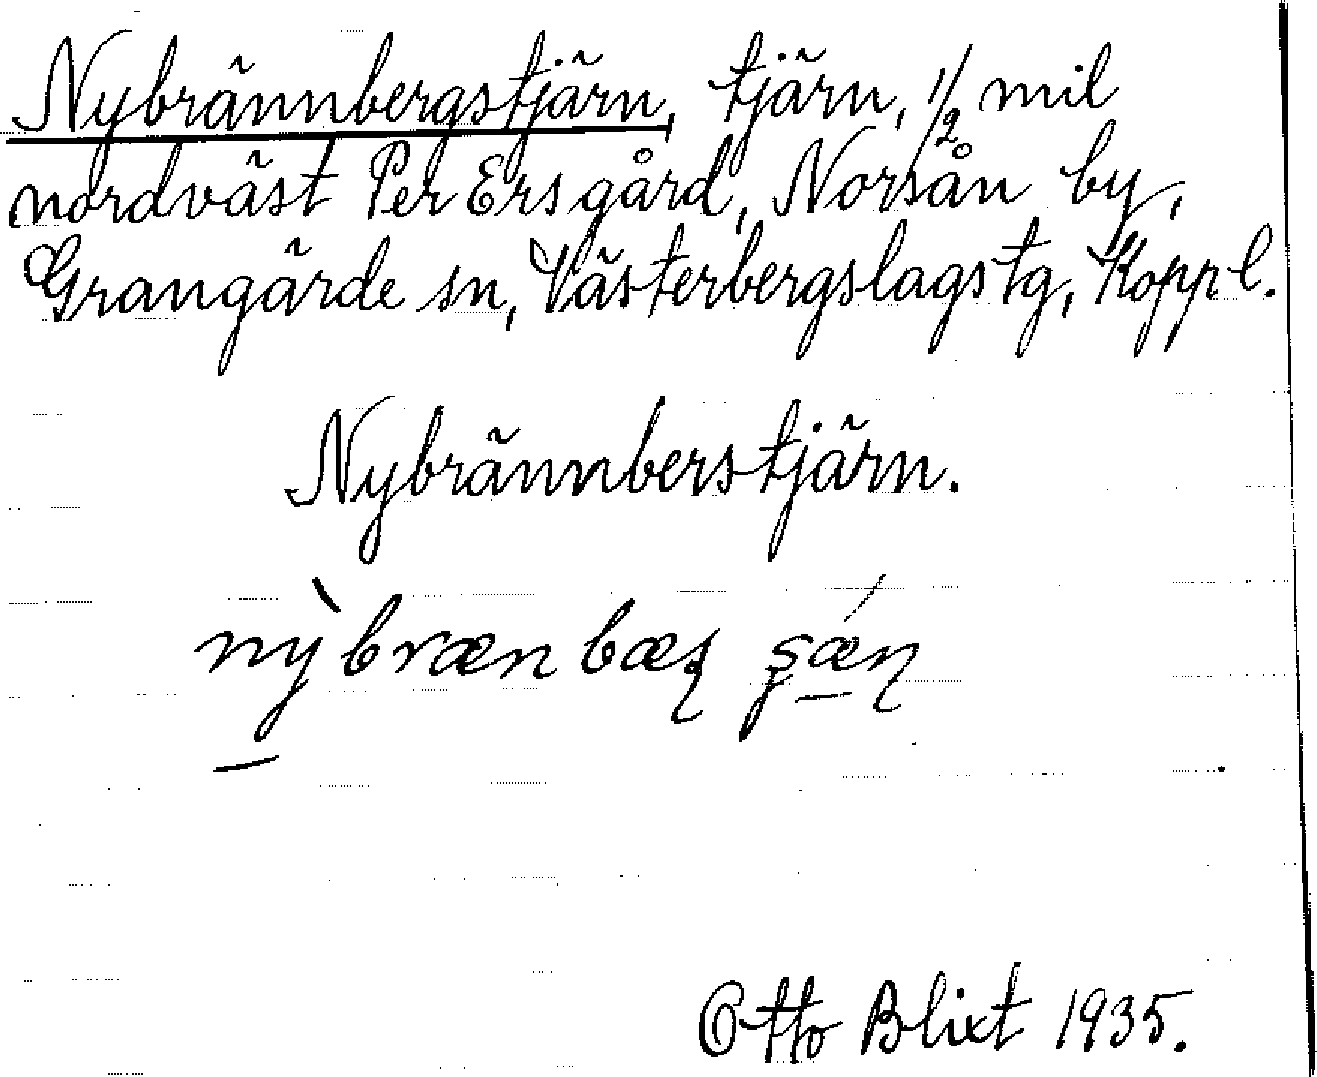 Nybrännbergstjärn, tjärn, 1/2 mil
nordväst Per Ersgård, Norsån by,
Grangärde sn, Västerbergslags tg, Koppl.
Nybrännberstjärn.
nỳbrænbæʂ ʂǽɳ
Otto Blixt 1935.